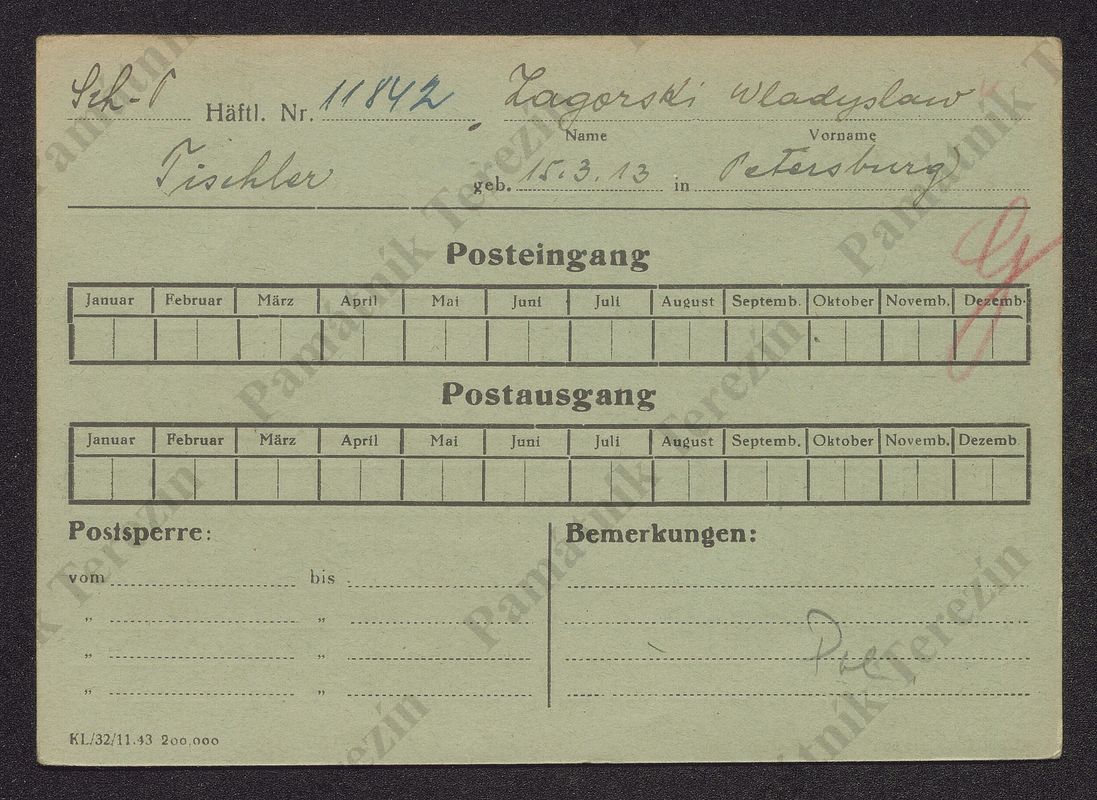 Sch-P Häftl. Nr. 11842 Zagorski Wladyslaw
Name Vorname
Tischler geb. 15.3.13 in Petersburg
Posteingang
Januar Februar März April Mai Juni Juli August Septemb. Oktober Novemb. Dezemb.
Postausgang
Januar Februar März April Mai Juni Juli August Septemb. Oktober Novemb. Dezemb.
Postsperre: Bemerkungen:
vom bis
„ „
„ „
„ „
KL/32/11.43 200,000
Památník Terezín